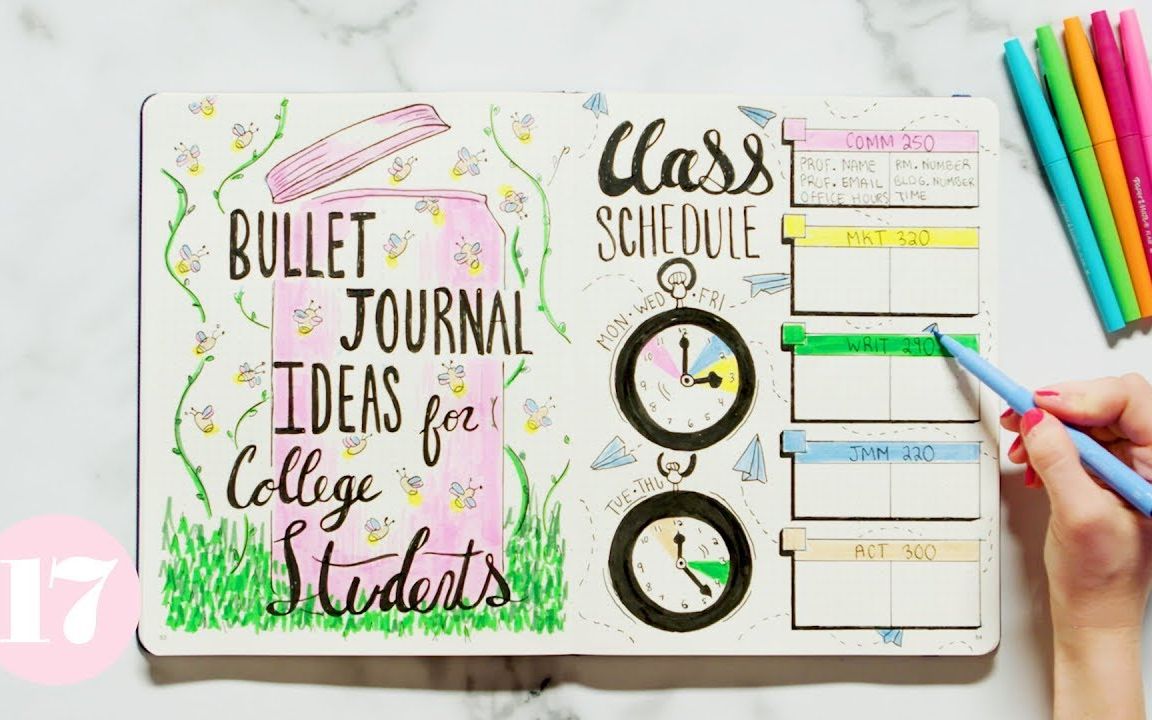 17
BULLET
JOURNAL
IDEAS for
College
Students
Class
SCHEDULE
MON·WED·FRI
TUE·THU
COMM 250
PROF. NAME
PROF. EMAIL
OFFICE HOURS
RM. NUMBER
BLDG. NUMBER
TIME
MKT 320
WRIT 290
JMM 220
ACT 300